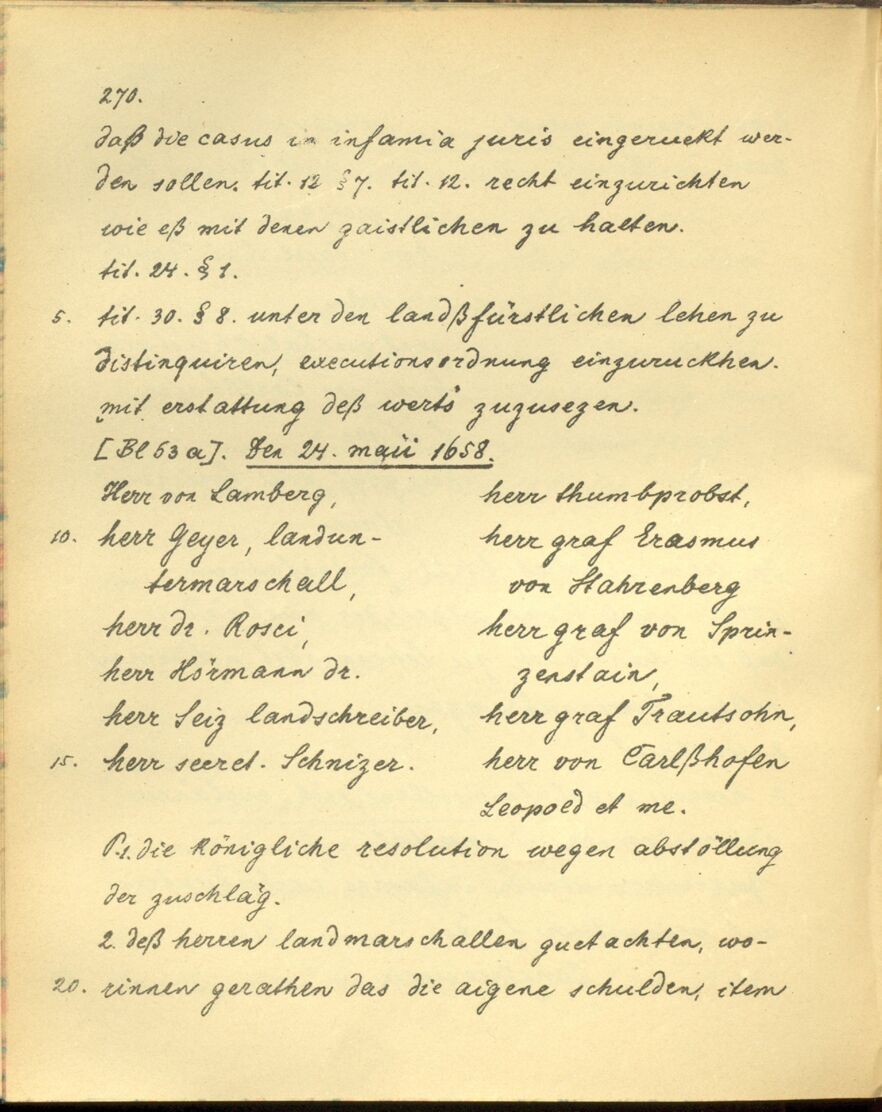 270.
daß die casus in infamia juris eingeruckt wer-
den sollen. tit. 12 § 7. tit. 12. recht einzurichten
wie eß mit denen gaistlichen zu halten.
tit. 24. § 1.
5. tit. 30. § 8. unter den landßfürstlichen lehen zu
distinquiren, executionsordnung einzuruckhen.
mit erstattung deß werts zuzusezen.
[Bl 53 a]. Den 24. maii 1658.
Herr von Lamberg,
10. herr Geyer, landun-
termarschall,
herr dr. Rosci,
herr Hörmann dr.
herr Seiz landschreiber,
15. herr secret. Schnizer.
herr thumbprobst,
herr graf Erasmus
von Stahrenberg
herr graf von Sprin-
zenstain,
herr graf Trautsohn,
herr von Carlßhofen
Leopold et me.
P. 1. die königliche resolution wegen abstöllung
der zuschläg.
2. deß herren landmarschallen guetachten, wo-
20. rinnen gerathen das die aigene schulden, item